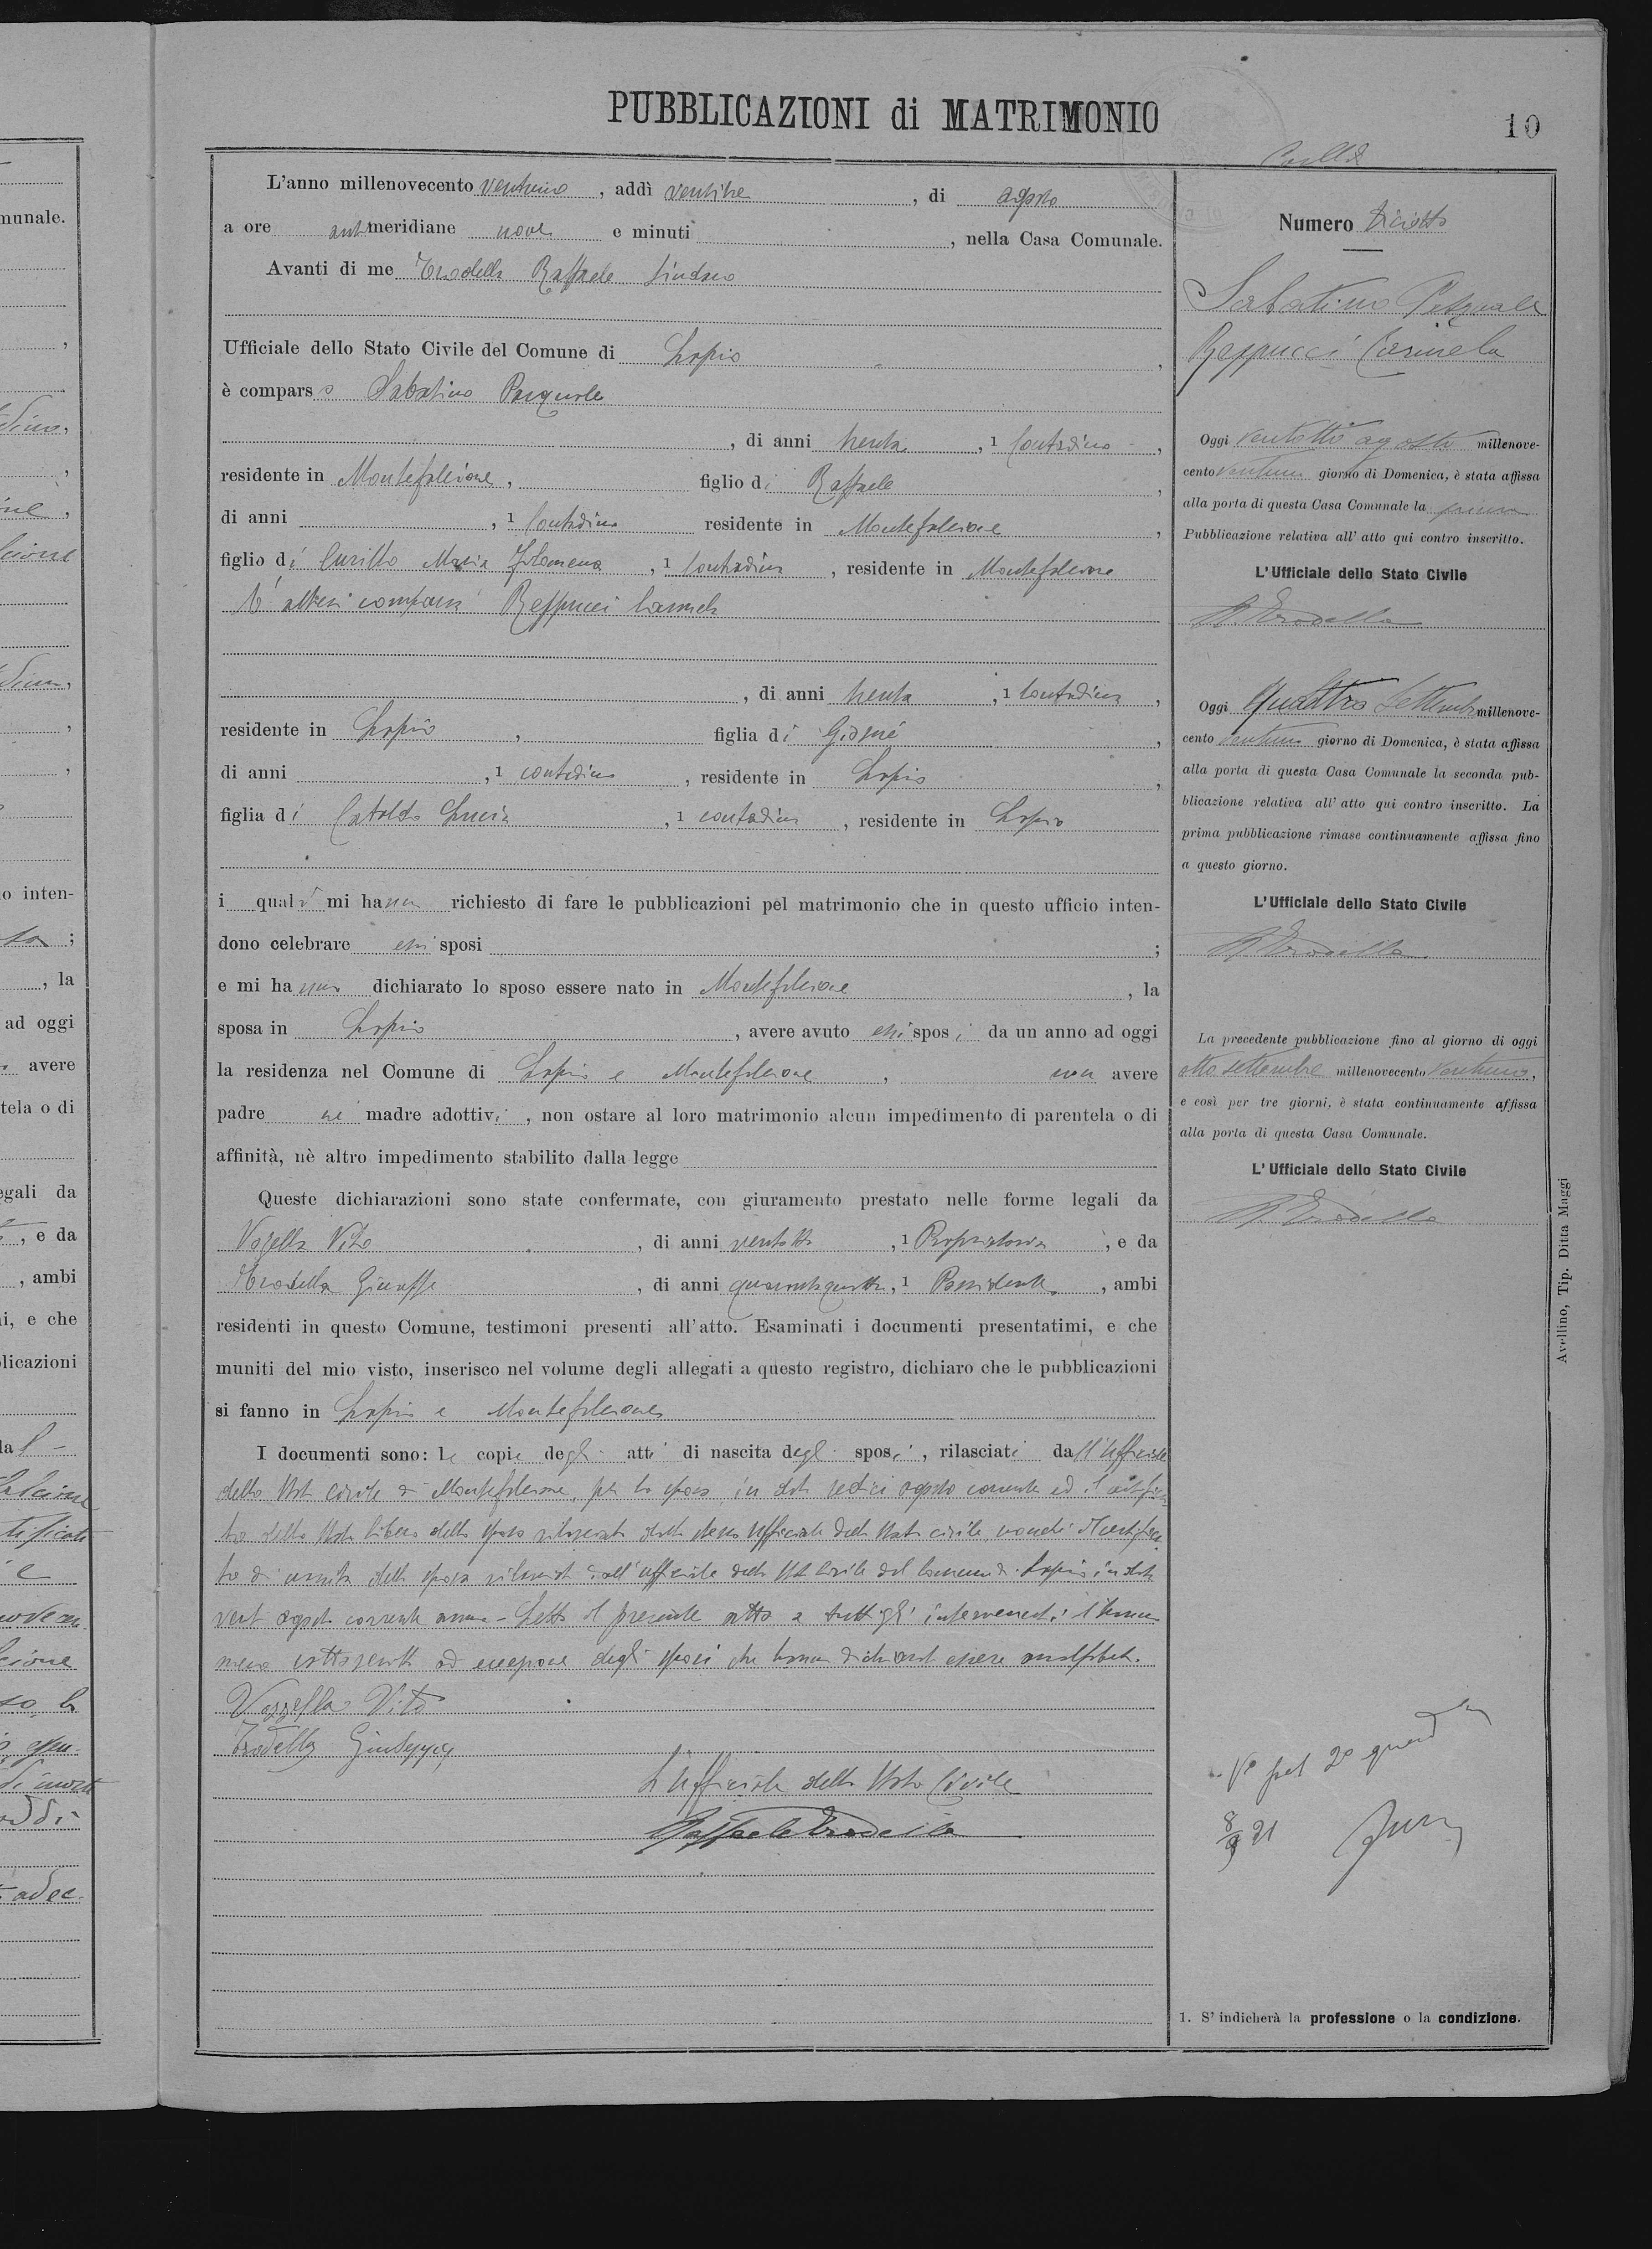 PUBBLICAZIONI di MATRIMONIO
10
L'anno millenovecento ventuno, addì ventitre, di agosto
a ore antimeridiane nove e minuti, nella Casa Comunale.
Avanti di me Trodella Raffaele Sindaco
Ufficiale dello Stato Civile del Comune di Lapio,
è comparso Sabatino Pasquale
, di anni trenta, 1 Contadino,
residente in Montefalcione, figlio di Raffaele,
di anni , 1 Contadino residente in Montefalcione,
figlio di Maria Filomena, 1 Contadina, residente in Montefalcione
È altresì comparsa Reppucci Carmela
, di anni trenta, 1 Contadina,
residente in Lapio, figlia di Giosuè,
di anni , 1 contadino, residente in Lapio,
figlia di Cataldo Lucia, 1 contadina, residente in Lapio
i quali mi hanno richiesto di fare le pubblicazioni pel matrimonio che in questo ufficio inten-
dono celebrare essi sposi ;
e mi hanno dichiarato lo sposo essere nato in Montefalcione, la
sposa in Lapio, avere avuto essi sposi da un anno ad oggi
la residenza nel Comune di Lapio e Montefalcione, non avere
padre nè madre adottivi, non ostare al loro matrimonio alcun impedimento di parentela o di
affinità, nè altro impedimento stabilito dalla legge
Queste dichiarazioni sono state confermate, con giuramento prestato nelle forme legali da
Vozella Vito, di anni ventotto, 1 , e da
Trodella Giuseppe, di anni , 1 Possidente, ambi
residenti in questo Comune, testimoni presenti all'atto. Esaminati i documenti presentatimi, e che
muniti del mio visto, inserisco nel volume degli allegati a questo registro, dichiaro che le pubblicazioni
si fanno in Lapio e Montefalcione
I documenti sono: le copie degli atti di nascita degli sposi, rilasciati dall'Ufficiale
dello Stato Civile di Montefalcione, per lo sposo, in data sedici agosto corrente ed il certifica-
to dello Stato libero dello sposo rilasciato dallo stesso Ufficiale dello Stato civile, nonchè il certifica
to di nascita della sposa rilasciato dall'ufficiale dello Stato Civile del Comune di Lapio in data
venti agosto corrente anno - Letto il presente atto a tutti gli intervenuti l'hanno
meco sottoscritto ad eccezione degli sposi che hanno dichiarato essere analfabeti.
Vozzella Vito
Trodella Giuseppe
L'Ufficiale dello Stato Civile
Raffaele Trodella
Numero diciotto
Sabatino Pasquale
Reppucci Carmela
Oggi ventotto agosto millenove-
cento ventuno giorno di Domenica, è stata affissa
alla porta di questa Casa Comunale la prima
Pubblicazione relativa all' atto qui contro inscritto.
L'Ufficiale dello Stato Civile
R. Trodella
Oggi quattro Settembre millenove-
cento ventuno giorno di Domenica, è stata affissa
alla porta di questa Casa Comunale la seconda pub-
blicazione relativa all' atto qui contro inscritto. La
prima pubblicazione rimase continuamente affissa fino
a questo giorno.
L'Ufficiale dello Stato Civile
R. Trodella
La precedente pubblicazione fino al giorno di oggi
otto settembre millenovecento ventuno,
e così per tre giorni, è stata continuamente affissa
alla porta di questa Casa Comunale.
L'Ufficiale dello Stato Civile
R. Trodella
8/9 21
1. S' indicherà la professione o la condizione.
Avellino, Tip. Ditta Maggi
munale.
o inten-
, la
ad oggi
avere
tela o di
egali da
, e da
, ambi
i, e che
licazioni